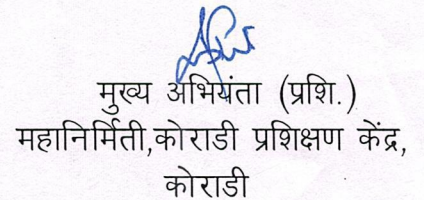 मुख्य अभियंता (प्रशि.)
महानिर्मिती,कोराडी प्रशिक्षण केंद्र,
कोराडी